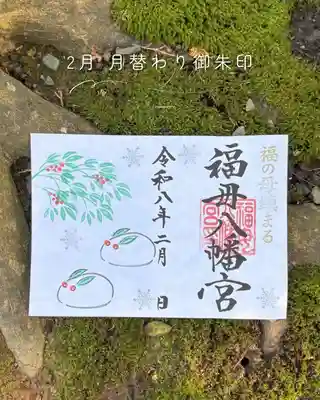 2月 月替わり御朱印
福の母集まる
福母八幡宮
令和八年二月 日